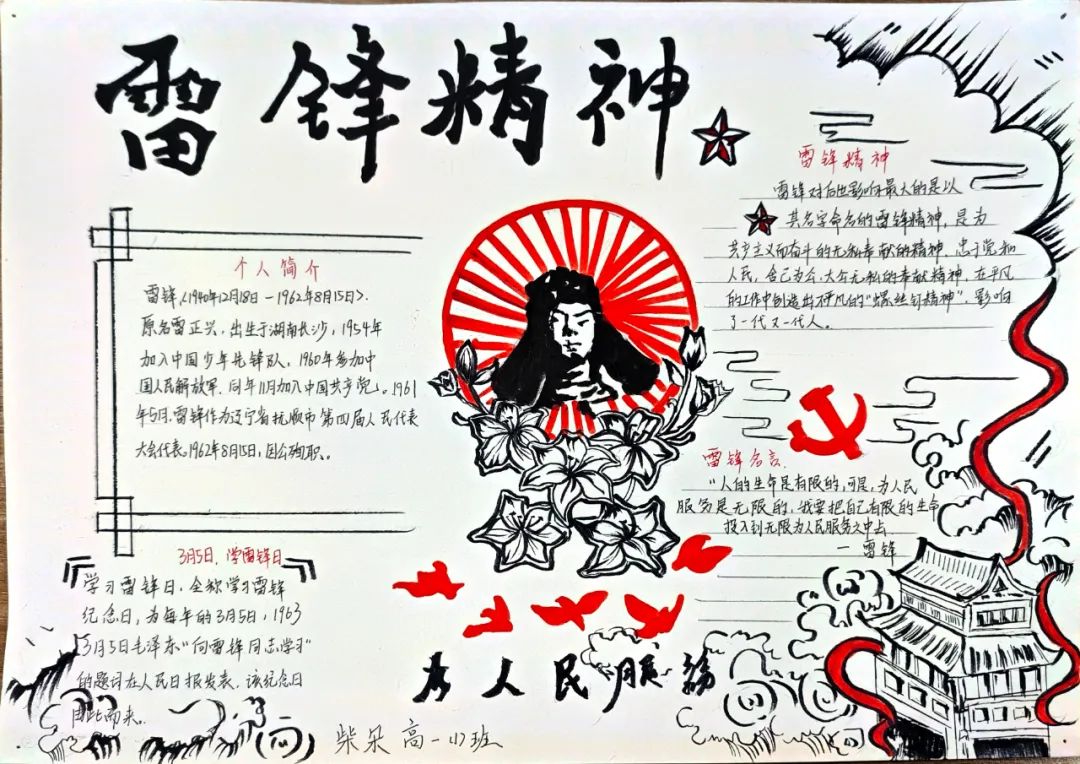 雷锋精神
个人简介
雷锋,(1940年12月18日-1962年8月15日).
原名雷正兴,出生于湖南长沙,1954年
加入中国少年先锋队,1960年参加中
国人民解放军,同年11月加入中国共产党。1961
年5月,雷锋作为辽宁省抚顺市第四届人民代表
大会代表。1962年8月15日,因公殉职。
3月5日,学雷锋日
学习雷锋日,全称学习雷锋
纪念日,为每年的3月5日,1963
3月5日毛泽东"向雷锋同志学习"
的题词在人民日报发表,该纪念日
由此而来。
雷锋精神
雷锋对后世影响最大的是以
其名字命名的雷锋精神,是为
共产主义而奋斗的无私奉献的精神,忠于党和
人民,舍己为公,大公无私的奉献精神,在平凡
的工作中创造出不平凡的"螺丝钉精神",影响
了一代又一代人。
雷锋名言
"人的生命是有限的,可是,为人民
服务是无限的,我要把自己有限的生命
投入到无限为人民服务之中去
一雷锋
为人民服务
高一
班